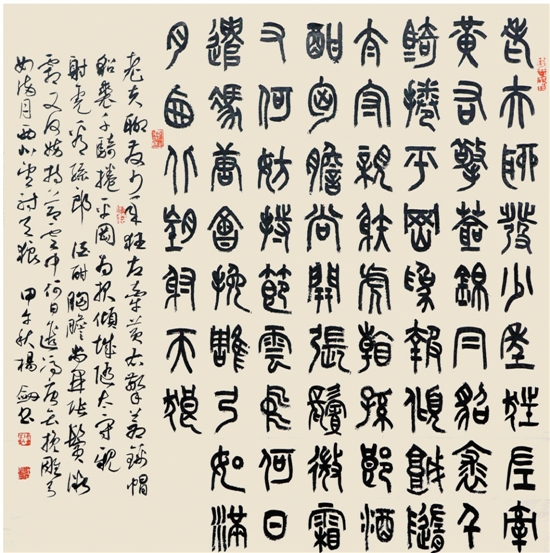 老夫聊發少年狂左牽
黃右擎蒼錦冃貂裘千
騎捲平岡為報傾城隨
太守親射虎看孫郎酒
酣胸膽尚開張鬢微霜
又何妨持節雲中何日
遣馮唐會挽雕弓如滿
月西北望射天狼
老夫聊發少年狂左牽黃右擎蒼錦帽
貂裘千騎捲平岡為報傾城隨太守親
射虎看孫郎酒酣胸膽尚開張鬢微
霜又何妨持節雲中何日遣馮唐會挽雕弓
如滿月西北望射天狼 甲午秋楊劍書